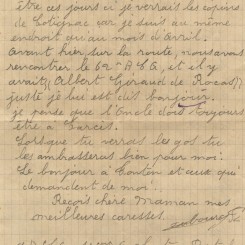 être ces jours ci je verrais les copains
de Cotignac car je suis au même
endroit qu'au mois d'Avril.
Avant hier sur la route, nous avons
rencontrer le 62e B C A, et il y
avait (Albert Giraud de Rocas)
juste je lui est dit bonjour.
je pense que l'Oncle dois toujours
être à Garcis.
Lorsque tu verras les gos tu
les embrasseras bien pour moi.
Le bonjour à Tonton et ceux qui
demandent de moi.
Reçois chère Maman mes
meilleures caresses.